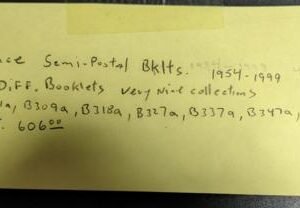 Semi-Postal Bklts. 1954-1999
Diff. Booklets very nice collections
B309a, B318a, B327a, B337a, B347a,
606⁰⁰